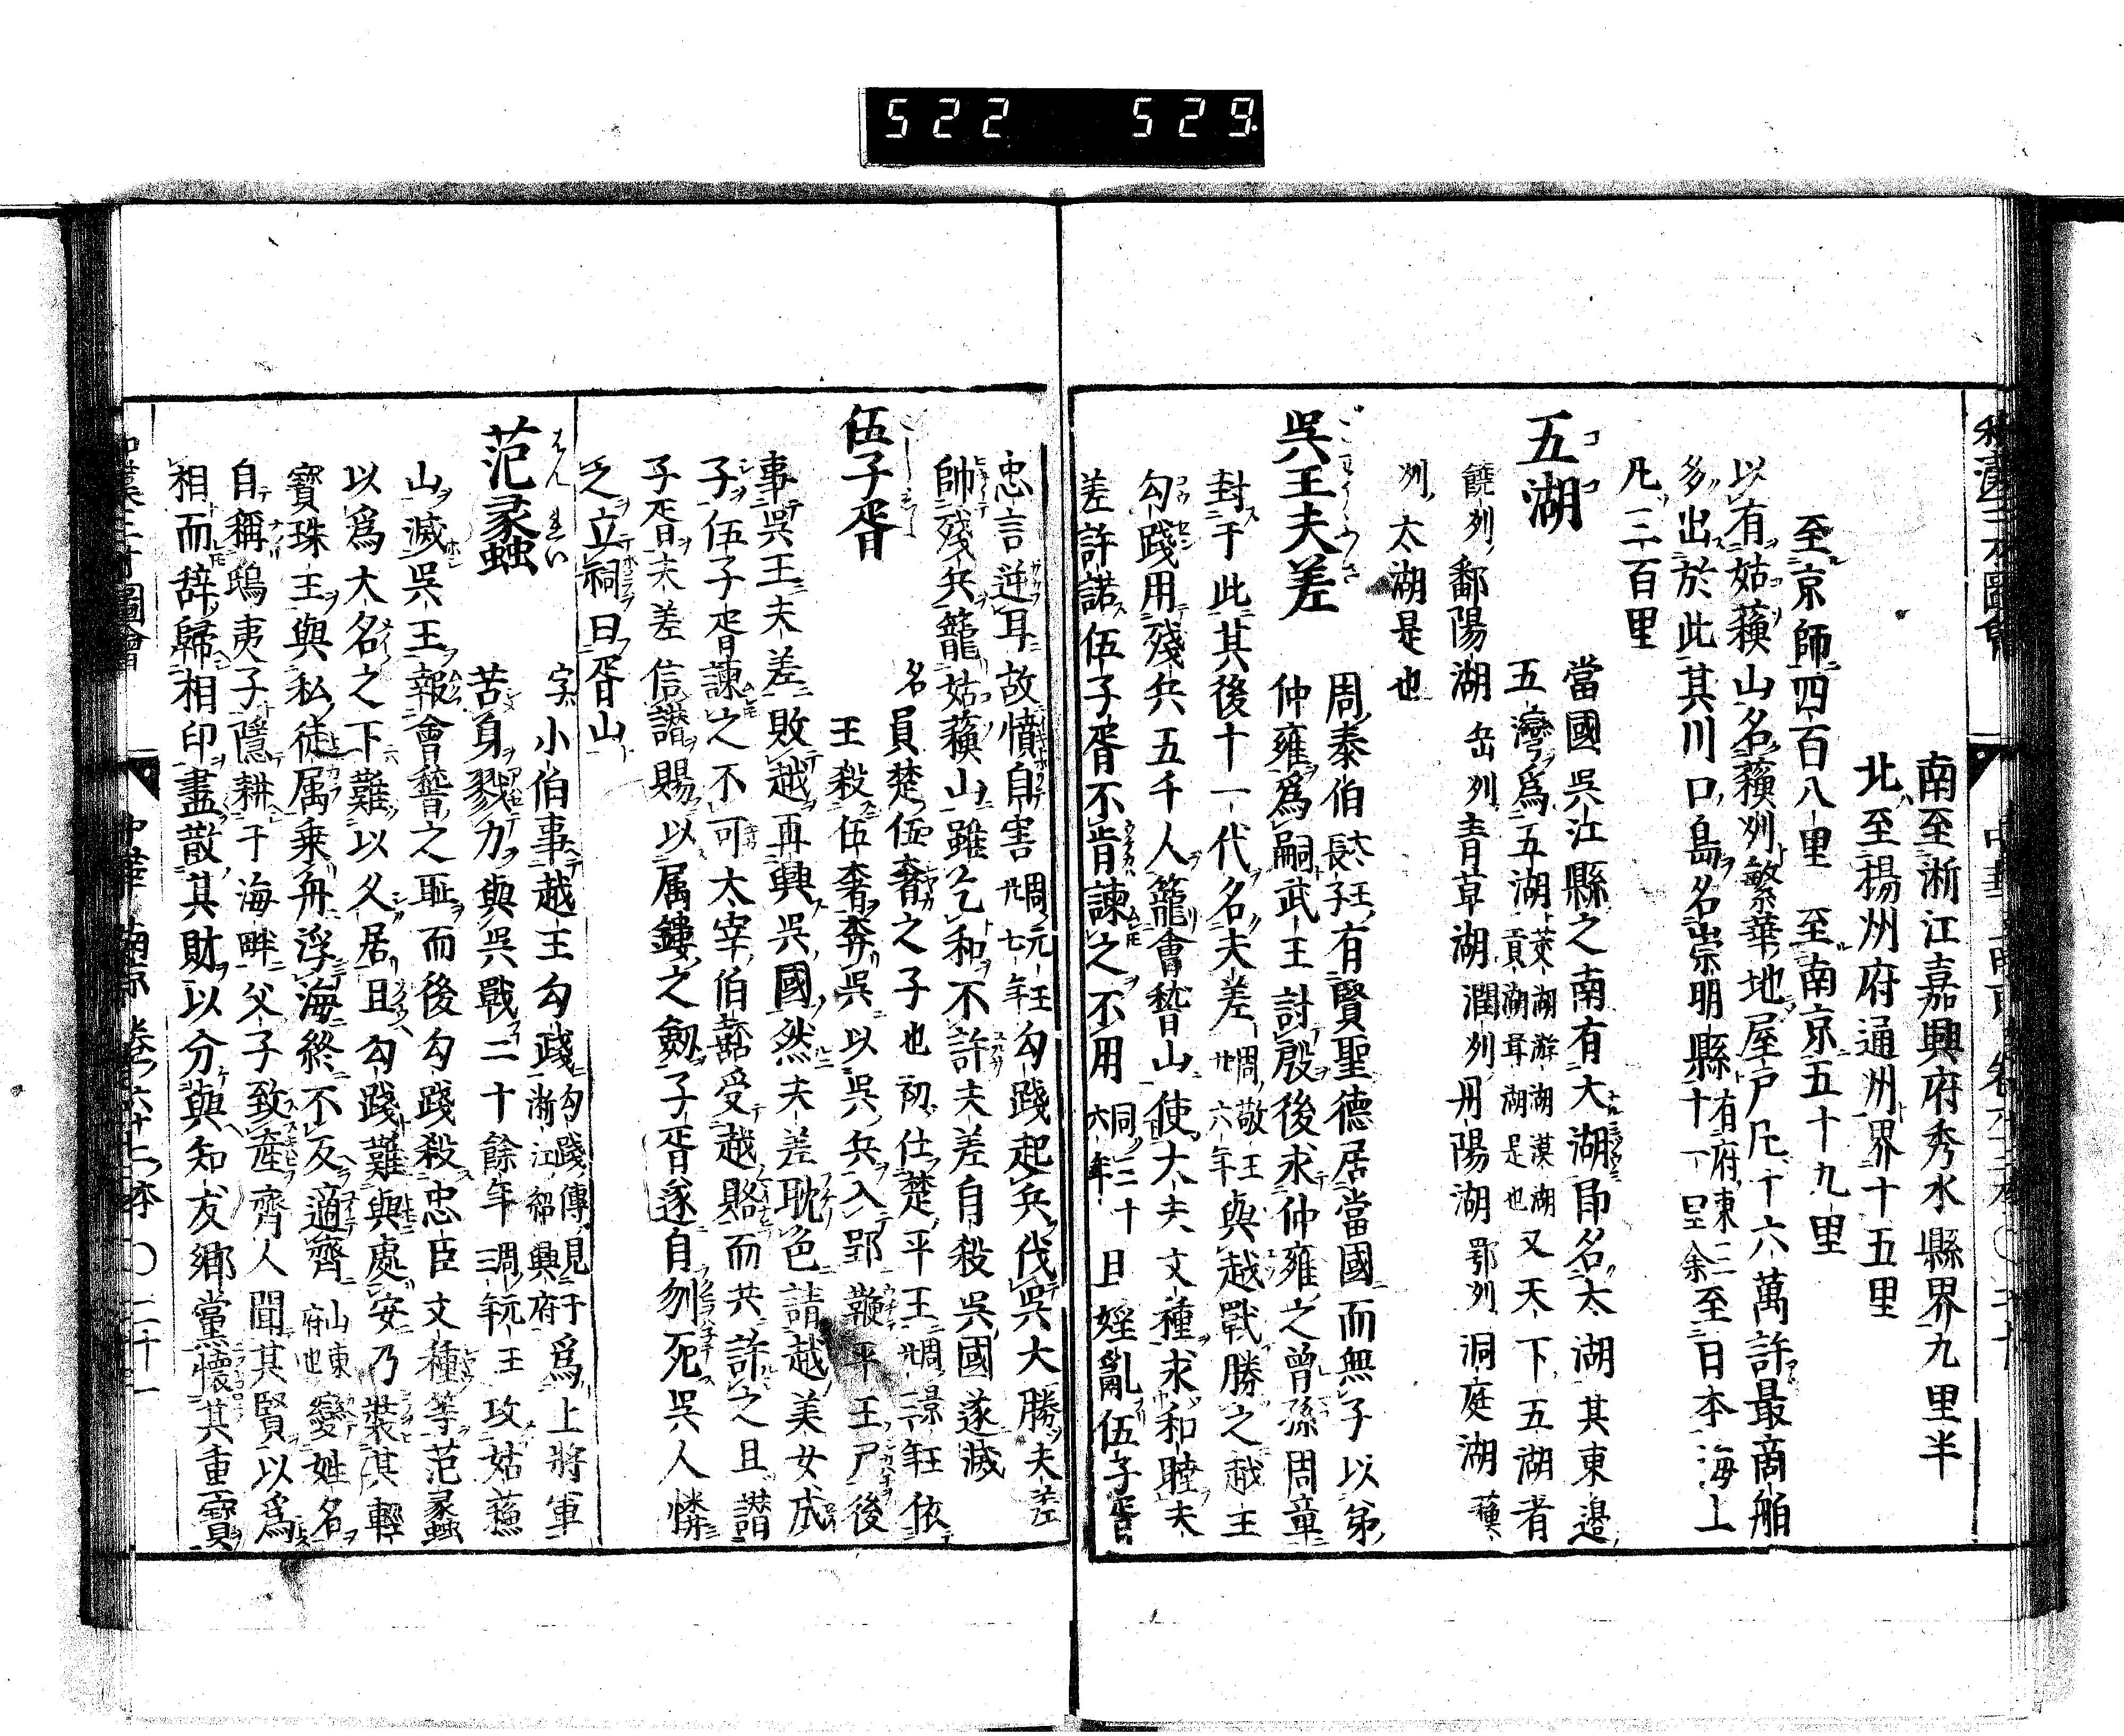 522 529
南至淅江嘉興府秀水縣界九里半
北至揚州府通州界十五里
至京師四百八里 至南京五十九里
以有姑蘓山名蘓州繁華地屋戸凡十六萬許最商舶
多出於此其川口島名崇明縣十一有府東二至日本海上
凡三百里
五湖
當國呉江縣之南有大湖即名太湖其東邉
五灣爲五湖 菱湖游湖漠湖 貢湖胥湖是也 又天下五湖者
饒州鄱陽湖 岳州青草湖 潤州丹陽湖 鄂州洞庭湖 蘓
州太湖是也
呉王夫差
周泰伯 大王長子 有賢聖德居當國而無子以弟
仲雍爲嗣武王討殷後求仲雍之曽孫周章
封于此其後十一代名夫差 周敬王廿六年 與越戰勝之越王
勾踐用殘兵五千人籠會稽山使大夫文種求和睦夫
差許諾伍子胥不肯諫之不用 同三十六年 且婬亂伍子胥
忠言逆耳故憤自害 周元王七年 勾踐起兵伐呉大勝夫差
帥殘兵籠姑蘓山雖乞和不許夫差自殺呉國遂滅
伍子胥
名員楚伍奢之子也初仕楚平王 周景王 依
王殺伍奢奔呉以呉兵入郢鞭平王尸後
事呉王夫差敗越再興呉國然夫差耽色請越美女成
子伍子胥諫之不可太宰伯嚭受越賂而共許之且譛
子胥夫差信譛賜以属鏤之劔子胥遂自刎死呉人憐
之立祠曰胥山
范蠡
字小伯事越王勾踐 勾踐傳見于淅江紹興府 爲上將軍
苦身戮力與呉戰二十餘年 周元王三年 攻姑蘓
山滅呉王報會稽之耻而後勾踐殺忠臣文種等范蠡
以爲大名之下難以久居且勾踐難與處安乃裝其輕
寳珠王與私徒属乗舟浮海終不反適齊 山東府也 變姓名
自稱鴟夷子隱耕于海畔父子致産齊人聞其賢以爲
相而辞歸相印盡散其財以分與知友郷黨懷其重寳